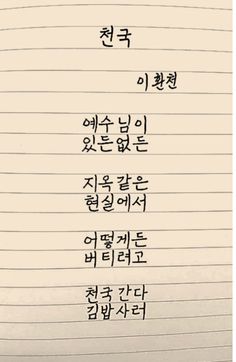 천국
이환천
예수님이
있든없든
지옥같은
현실에서
어떻게든
버티려고
천국간다
김밥사러